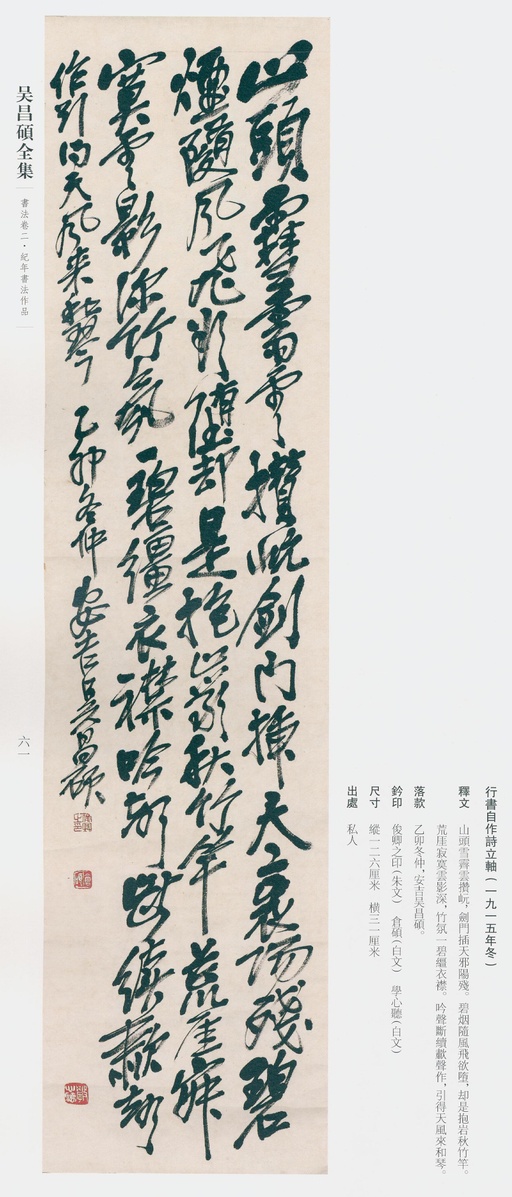 行書自作詩立軸（一九一五年冬）
釋文　山頭雪霽雲攢岏，劍門插天邪陽殘。碧烟隨風飛欲墮，却是抱岩秋竹竿。
荒厓寂寞雲影深，竹氛一碧繮衣襟。吟聲斷續歗聲作，引得天風來和琴。
落款　乙卯冬仲，安吉吴昌碩。
鈐印　俊卿之印（朱文）　倉碩（白文）　學心聽（白文）
尺寸　縱一二六厘米　橫三一厘米
出處　私人
山頭雪霽雲攢岏劍門插天衺陽殘碧
煙隨風飛欲墮却是抱岩秋竹竿荒厓寂
寞雲影深竹氛一碧繮衣襟吟聲斷續歗聲
作引得天風來和琴　乙卯冬仲　安吉吴昌碩
吴昌碩全集　書法卷二・紀年書法作品
六一